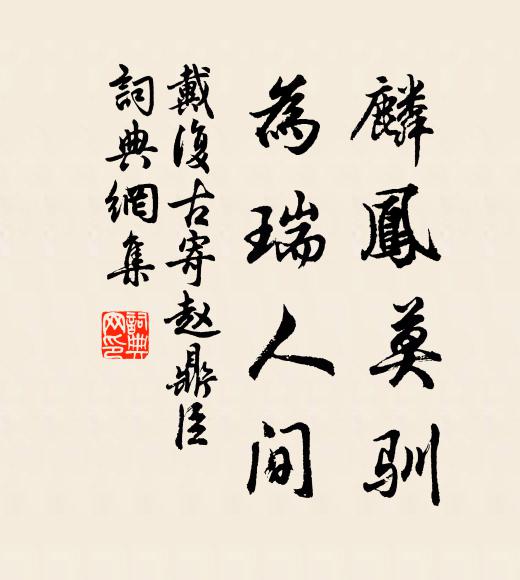 麟鳳莫馴
為瑞人間
戴復古寄趙鼎臣
詞典網集
詞典
网印